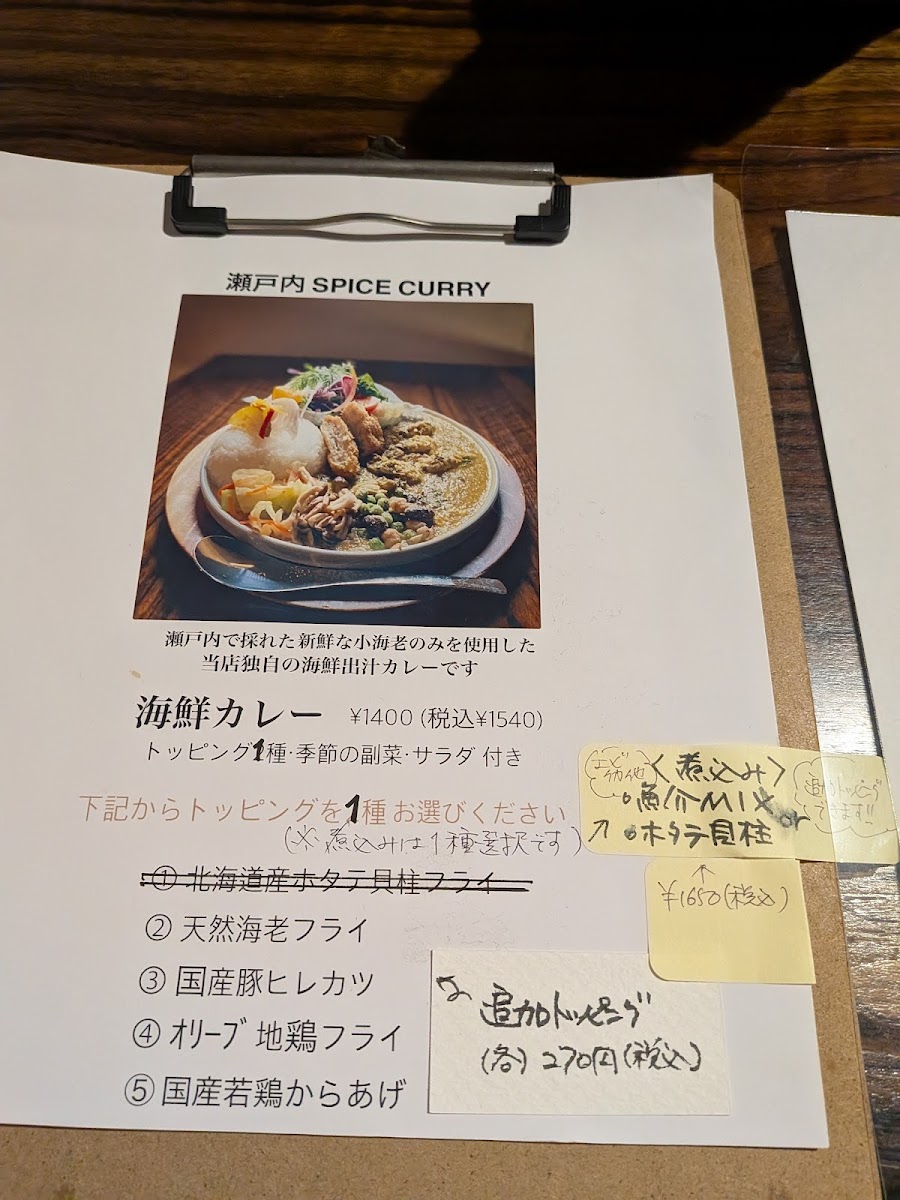 瀬戸内 SPICE CURRY
瀬戸内で採れた新鮮な小海老のみを使用した
当店独自の海鮮出汁カレーです
海鮮カレー ¥1400 (税込¥1540)
トッピング1種・季節の副菜・サラダ 付き
下記からトッピングを1種 お選びください
(※煮込みは1種選択です)
① 北海道産ホタテ貝柱フライ
② 天然海老フライ
③ 国産豚ヒレカツ
④ オリーブ 地鶏フライ
⑤ 国産若鶏からあげ
エビ
<煮込み>
・魚介MIX or
↗ ・ホタテ貝柱
追加トッピング
できます!!
↑
¥1650(税込)
追加トッピング
(各) 270円(税込)